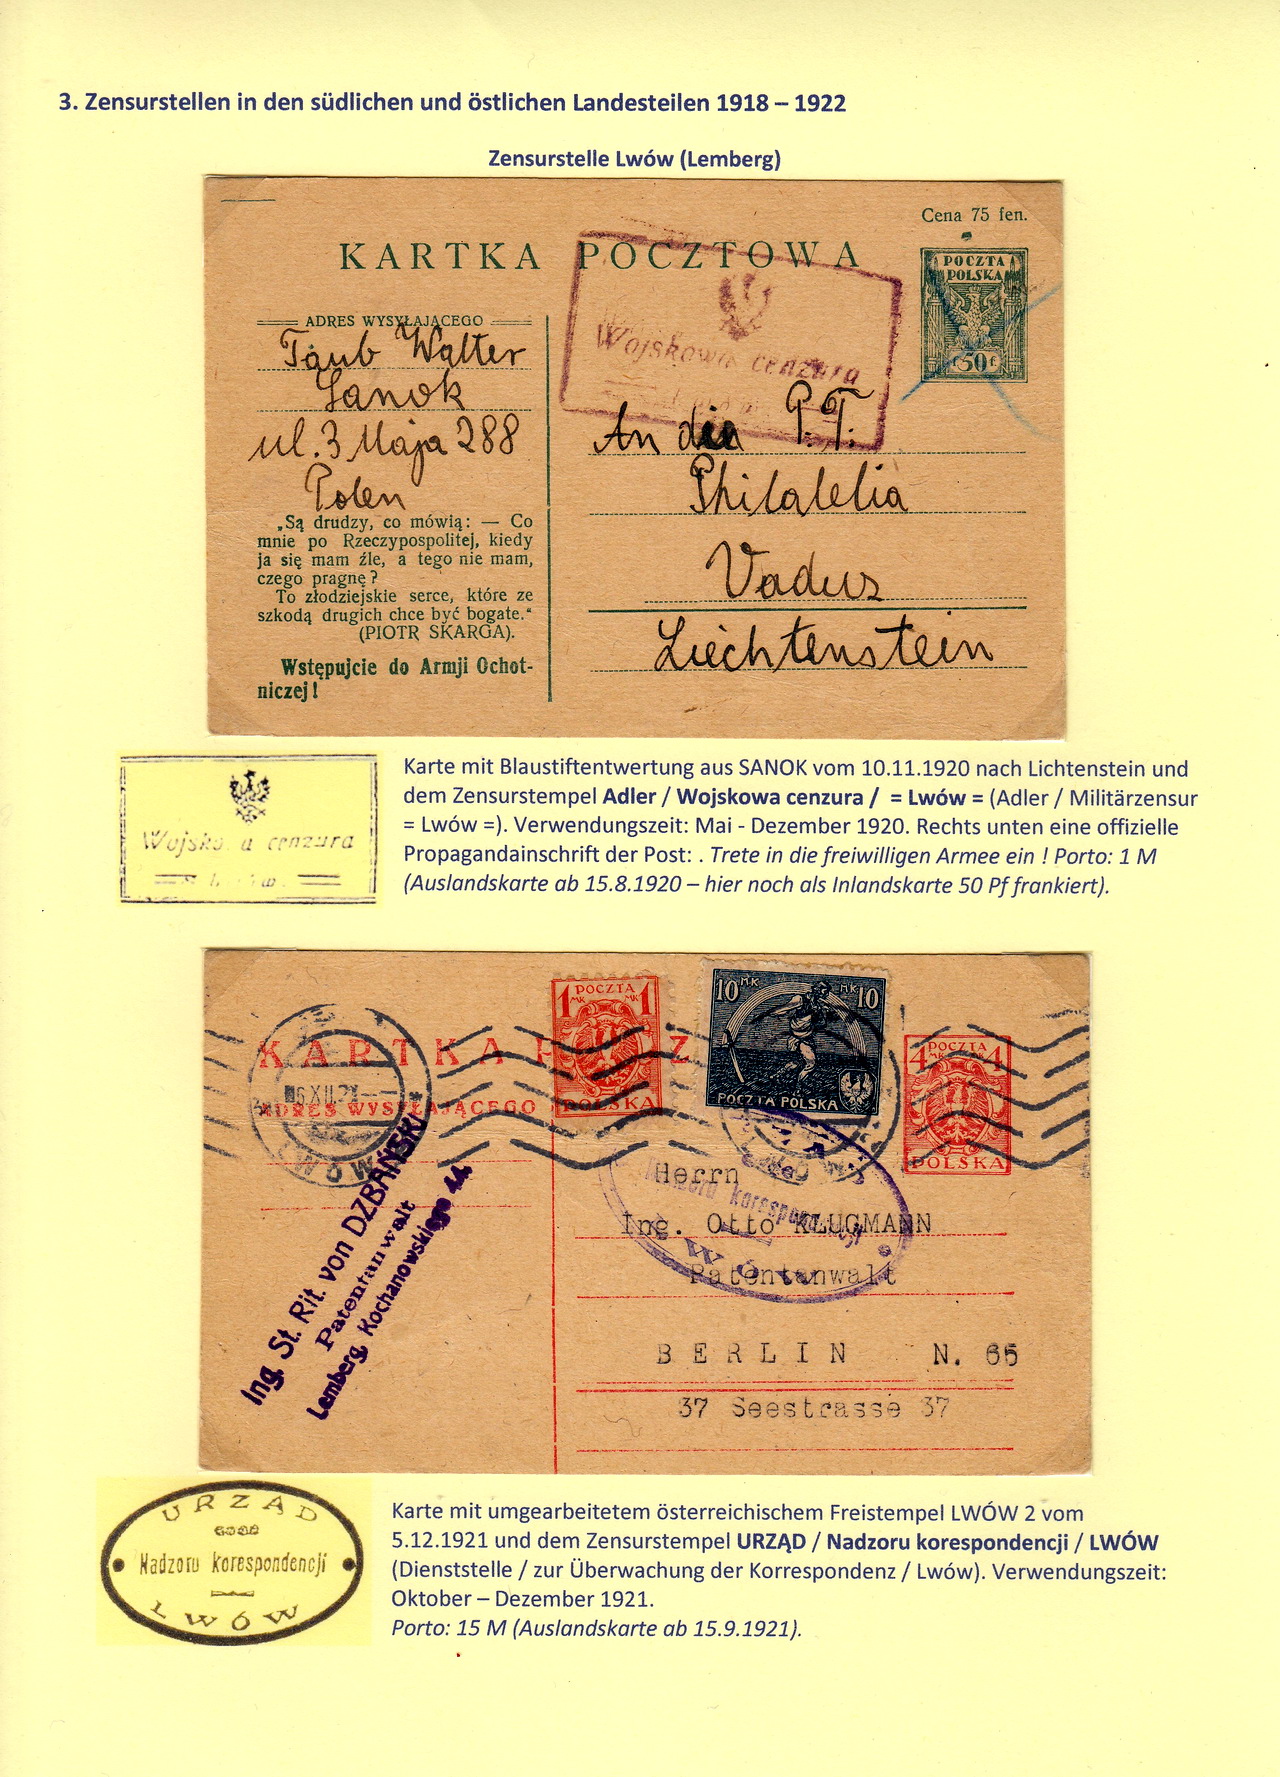 3. Zensurstellen in den südlichen und östlichen Landesteilen 1918 – 1922
Zensurstelle Lwów (Lemberg)
Cena 75 fen.
KARTKA POCZTOWA
POCZTA
POLSKA
50 f
ADRES WYSYŁAJĄCEGO
Taub Walter
Sanok
ul. 3 Maja 288
Polen
„Są drudzy, co mówią: — Co
mnie po Rzeczypospolitej, kiedy
ja się mam źle, a tego nie mam,
czego pragnę?
To złodziejskie serce, które ze
szkodą drugich chce być bogate.“
(PIOTR SKARGA).
Wstępujcie do Armji Ochot-
niczej!
Wojskowa cenzura
An die P.T.
Philatelia
Vaduz
Liechtenstein
Wojsko a cenzura
Karte mit Blaustiftentwertung aus SANOK vom 10.11.1920 nach Lichtenstein und
dem Zensurstempel Adler / Wojskowa cenzura / = Lwów = (Adler / Militärzensur
= Lwów =). Verwendungszeit: Mai - Dezember 1920. Rechts unten eine offizielle
Propagandainschrift der Post: . Trete in die freiwilligen Armee ein ! Porto: 1 M
(Auslandskarte ab 15.8.1920 – hier noch als Inlandskarte 50 Pf frankiert).
KARTKA P Z
ADRES WYSYŁAJĄCEGO
1 MK POCZTA MK 1
POLSKA
10 MK MK 10
POCZTA POLSKA
4 POCZTA 4
MK MK
POLSKA
6 XII.21
LWÓW
Ing. St. Rit. von DZBAŃSKI
Patentanwalt
Lemberg, Kochanowskiego 44
Nadzoru korespondencji
LWÓW
Herrn
Ing. Otto KLUGMANN
Patentanwalt
BERLIN N. 65
37 Seestrasse 37
URZĄD
Nadzoru korespondencji
LWÓW
Karte mit umgearbeitetem österreichischem Freistempel LWÓW 2 vom
5.12.1921 und dem Zensurstempel URZĄD / Nadzoru korespondencji / LWÓW
(Dienststelle / zur Überwachung der Korrespondenz / Lwów). Verwendungszeit:
Oktober – Dezember 1921.
Porto: 15 M (Auslandskarte ab 15.9.1921).